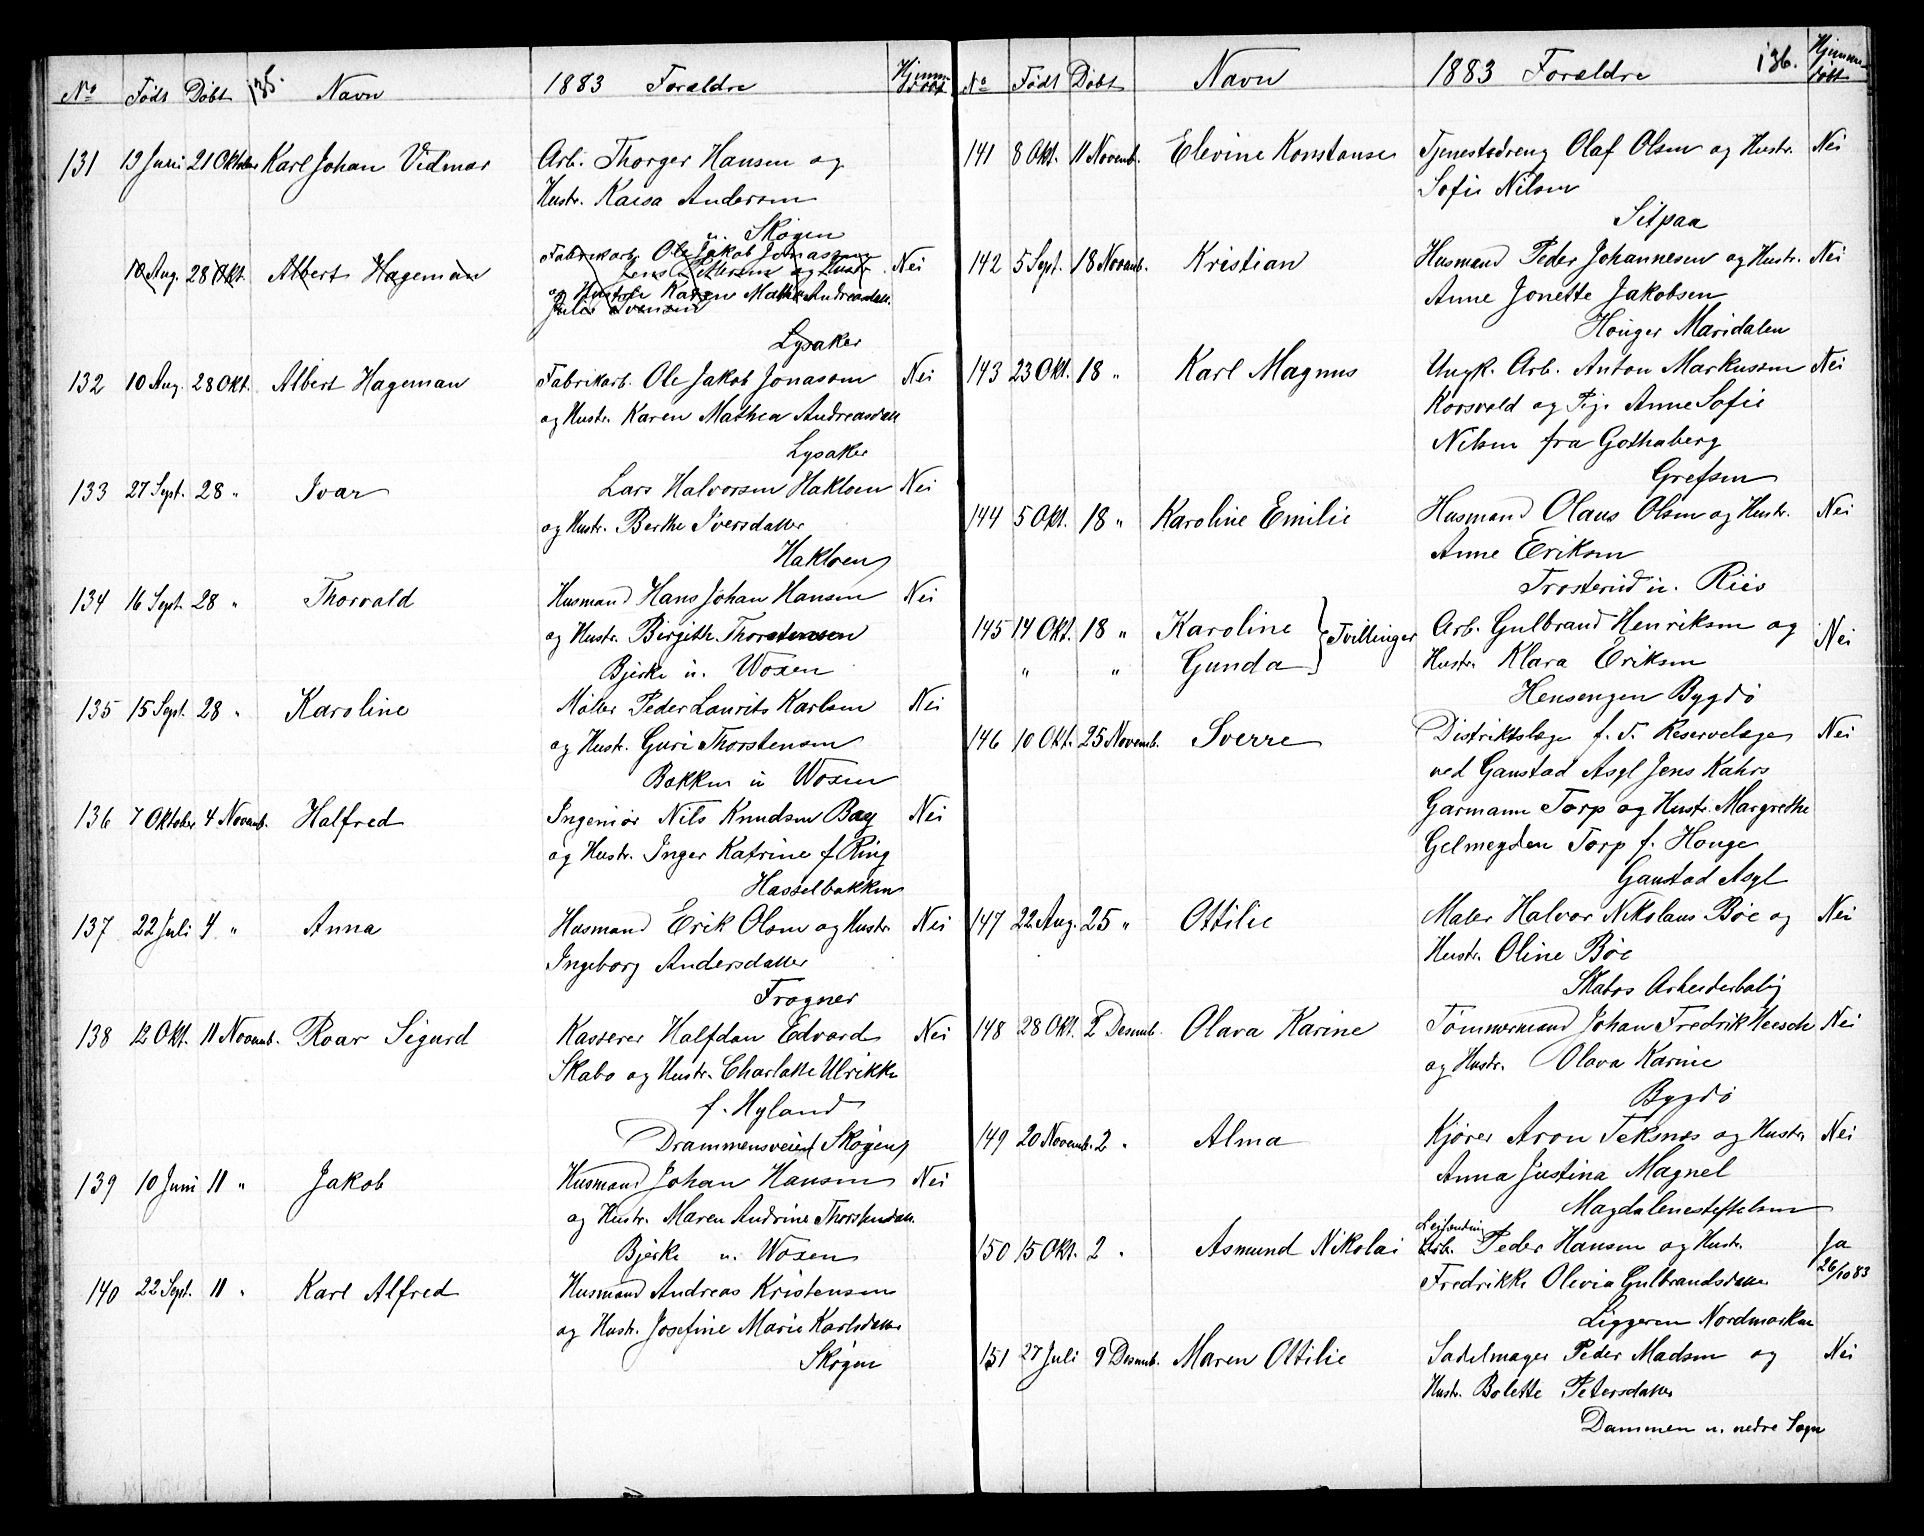 135.
No Født Døbt Navn 1883 Forældre Hjemmedøbt
131 19 Juni 21 Oktober Karl Johan Vidmar Arb. Thorger Hansen og
Hustr. Kaisa Anderson
u. Skøgen
10 Aug. 28 Okt. Albert Hageman Fabrikarb. Ole Jakob Jonassen Nei
Jens Pettersen og Hustr.
og Hustr. Karen Mathea Andreasdatt.
Julie Svensen
Lysaker
132 10 Aug. 28 Okt. Albert Hageman Fabrikarb. Ole Jakob Jonason Nei
og Hustr. Karen Mathea Andreasdatt
Lysaker
133 27 Sept. 28 " Ivar Lars Halvorsen Hakloen Nei
og Hustr. Berthe Iversdatter
Hakloen
134 16 Sept. 28 " Thorvald Husmand Hans Johan Hansen Nei
og Hustr. Birgith. Thorstensen
Bjerke u. Woxen
135 15 Sept. 28 " Karoline Møller Peder Laurits Karlsen Nei
og Hustr. Guri Thorstensen
Bakken u Woxen
136 7 Oktober 4 Novemb. Halfred Ingeniør Nils Knudsen Bay Nei
og Hustr. Inger Katrine f Ring
Hasselbakken
137 22 Juli 4 " Anna Husmand Erik Olsen og Hustr. Nei
Ingeborg Andersdatter
Frogner
138 12 Okt. 11 Novemb. Roar Sigurd Kasserer Halfdan Edvard Nei
Skabo og Hustr. Charlotte Ulrikke
f. Hyland
Drammensveien Skøgen
139 10 Juni 11 " Jakob Husmand Johan Hansen Nei
og Hustr. Maren Andrine Thorstendatt.
Bjerke u. Woxen
140 22 Sept. 11 " Karl Alfred Husmand Andreas Kristensen
og Hustr. Josefine Marie Karlsdatter
Skøgen
136.
No Født Døbt Navn 1883 Forældre Hjemmedøbt
141 8 Okt. 11 Novemb. Elevine Konstanse Tjenestedreng Olaf Olsen og Hustr. Nei
Sofie Nilsen
Sitpaa
142 5 Sept. 18 Novemb. Kristian Husmand Peder Johannesen og Hustr. Nei
Anne Jonette Jakobsen
Houger Maridalen
143 23 Okt. 18 " Karl Magnus Ungk. Arb. Anton Markuson Nei
Korsvold og Pig. Anne Sofie
Nilsen fra Gothaberg
Grefsen
144 5 Okt. 18 " Karoline Emilie Husmand Olaus Olsen og Hustr. Nei
Anne Eriksen
Trosterud u. Riis
145 14 Okt. 18 " Karoline } Tvillinger Arb. Gulbrand Henriksen og Nei
" " Gunda Hustr. Klara Eriksen
Hensengen Bygdø
146 10 Okt. 25 Novemb. Sverre Distriktslæge f. T. Reservelæge Nei
ved Gaustad Asyl Jens Kahrs
Garmann Torp og Hustr. Margrethe
Gelmeyden Torp f. Houge
Gaustad Asyl
147 22 Aug. 25 " Ottilie Maler Halvor Nikolaus Bøe og Nei
Hustr. Oline Bøe
Skabos Arbeiderbolig
148 28 Okt. 2 Desemb. Olava Karine Tømmermand Johan Fredrik Heesch Nei
og Hustr. Olava Karine
Bygdø
149 20 Novemb. 2 " Alma Kjører Aron Teksnes og Hustr. Nei
Anna Justina Magnel
Magdalenestiftelsen
150 15 Okt. 2 " Asmund Nikolai Leilænding
Arb. Peder Hansen og Hustr. Ja
Fredrikke Olivia Gulbrandsdatter 26/10 83
Liggeren Nordmarken
151 27 Juli 9 Desemb. Maren Ottilie Sadelmager Peder Madsen og Nei
Hustr. Bolette Petersdatter
Dammen u. nedre Sogn